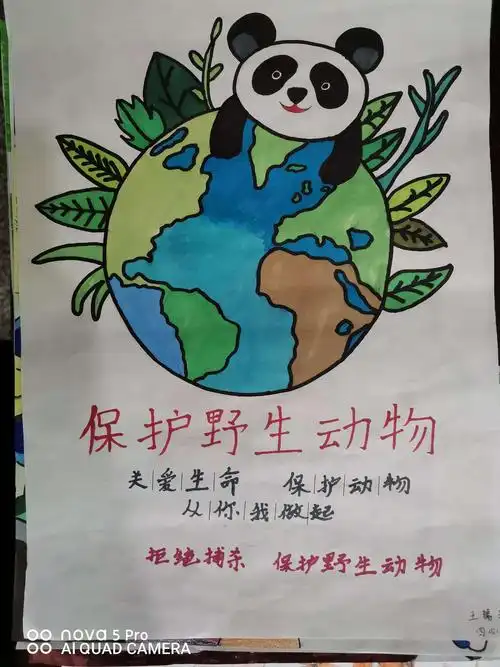 保护野生动物
关爱生命 保护动物
从你我做起
拒绝捕杀 保护野生动物
nova 5 Pro
AI QUAD CAMERA